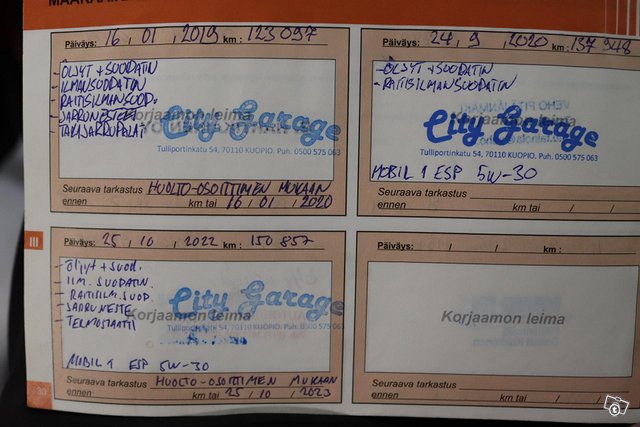 Päiväys: 16 , 01 , 2019 km : 123 097
- ÖLJYT + SUODATIN
- ILMANSUODATIN
- RAITISILMANSUOD.
- JARRUNESTE
TAKAJARRUPALAT
Korjaamon leima
City Garage
Tulliportinkatu 54, 70110 KUOPIO. Puh. 0500 575 063
Seuraava tarkastus HUOLTO-OSOITTIMEN MUKAAN
ennen km tai 16 / 01 / 2020
Päiväys: 24 , 9 , 2020 km : 137 948
- ÖLJYT + SUODATIN
- RAITISILMANSUODATIN
Korjaamon leima
City Garage
Tulliportinkatu 54, 70110 KUOPIO. Puh. 0500 575 063
MOBIL 1 ESP 5W-30
Seuraava tarkastus
ennen km tai / /
III
Päiväys: 25 , 10 , 2022 km : 150 857
- Öljyt + SUOD.
- ILM. SUODATIN.
- RAITISILM. SUOD.
- JARRUNESTE
- TERMOSTAATTI
Korjaamon leima
City Garage
Tulliportinkatu 54, 70110 KUOPIO. Puh. 0500 575 063
MOBIL 1 ESP 5W-30
Seuraava tarkastus HUOLTO-OSOITTIMEN MUKAAN
ennen km tai 25 / 10 / 2023
Päiväys: / / km :
Korjaamon leima
Seuraava tarkastus
ennen km tai / /
30